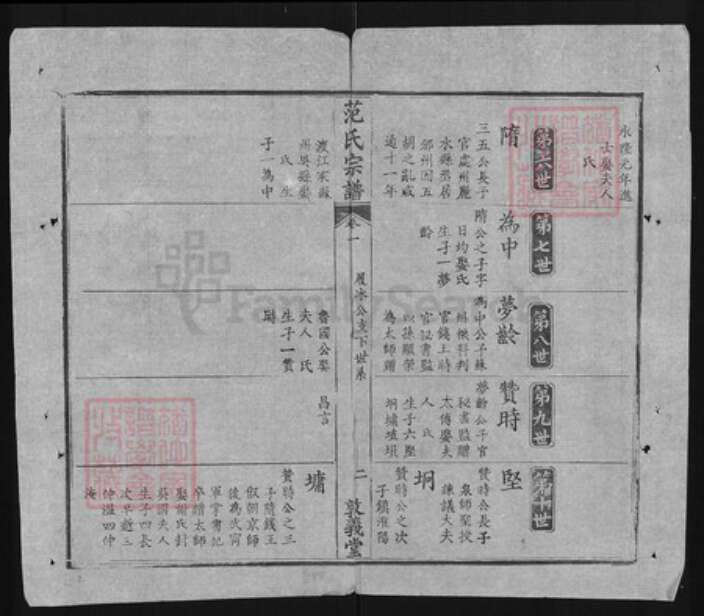 永隆元年進
士娶夫人
氏
第六世
隋
三五公長子
官處州麗
水縣丞居
邠州因五
胡之亂咸
通十一年
渡江家蘇
州吳縣娶
氏生
子一為中
第七世
為中
隋公之子字
日均娶氏
生子一夢
齡
第八世
夢齡
為中公子蘇
官錢王時
官秘書監
以孫顯榮
為太師贈
魯國公娶
夫人氏
生子一贊
時
第九世
贊時
夢齡公子官
秘書監贈
太傅娶夫
人氏
生子六堅
坰墉埴垻
昌言
第十世
堅
贊時公長子
諫議大夫
坰
贊時公之次
子鎮淮陽
墉
贊時公之三
子隨錢王
俶朝京師
後為武寧
軍掌書記
卒贈太師
吳國夫人
生子四長
次早逝三
仲溫四仲
淹
范氏宗譜
卷一
履冰公支下世系
二
敦義堂
FamilySearch